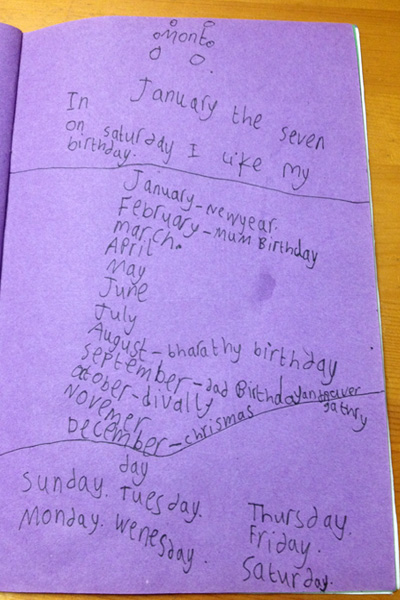 Mont
In January the seven
on saturday I like my
birthday.
January-Newyear.
February-mum Birthday
march.
April
May
June
July
August-bharathy birthday
September-dad Birthday
october-divally
Novemer
December-chrismas
day
Sunday. Tuesday.
Monday. Wenesday.
Thursday.
Friday.
Saturday.